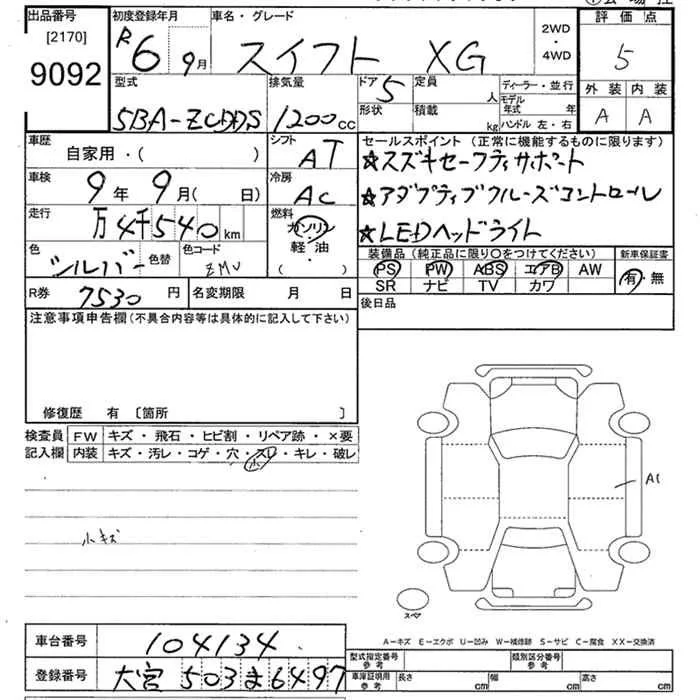 出品番号
[2170]
9092
初度登録年月
R6 9月
車名・グレード
スイフト XG
2WD
・
4WD
評価点
5
外装 内装
A A
型式
5BA-ZCDDS
排気量
1200cc
ドア 5
形状
定員 人
積載 kg
ディーラー・並行
モデル年式 年
ハンドル 左・右
車歴
自家用・( )
シフト
AT
車検
9年 9月( 日)
冷房
AC
走行
万4千540km
燃料
ガソリン
軽・油
( )
色
シルバー
色替
色コード
ZMU
セールスポイント (正常に機能するものに限ります)
☆スズキセーフティサポート
☆アダプティブクルーズコントロール
☆LEDヘッドライト
装備品 (純正品に限り○をつけてください)
PS PW ABS エアB AW
SR ナビ TV カワ
新車保証書
有・無
R券 7530円
名変期限 月 日
後日品
注意事項申告欄(不具合内容等は具体的に記入して下さい)
修復歴 有 〔箇所 〕
検査員記入欄
FW キズ・飛石・ヒビ割・リペア跡・×要
内装 キズ・汚レ・コゲ・穴・スレ・キレ・破レ
小
小キズ
A1
スペア
A-キズ E-エクボ U-凹み W-補修跡 S-サビ C-腐食 XX-交換済
車台番号 104134
登録番号 大宮 503 ま 6497
型式指定番号 参考
類別区分番号 参考
車庫証明用 参考
長さ cm
幅 cm
高さ cm